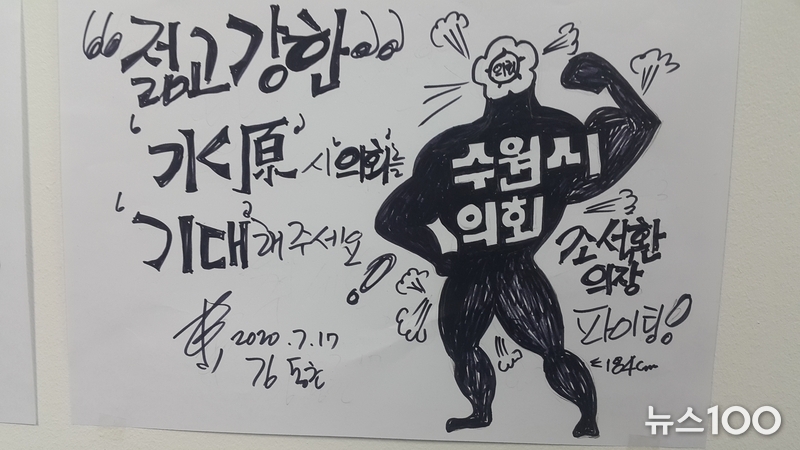 “젊고강한”
‘水原’시‘의회’를
‘기대’해주세요!
2020.7.17
김동초
의회
수원시
의회
조석환
의장
파이팅!
184cm
뉴스100